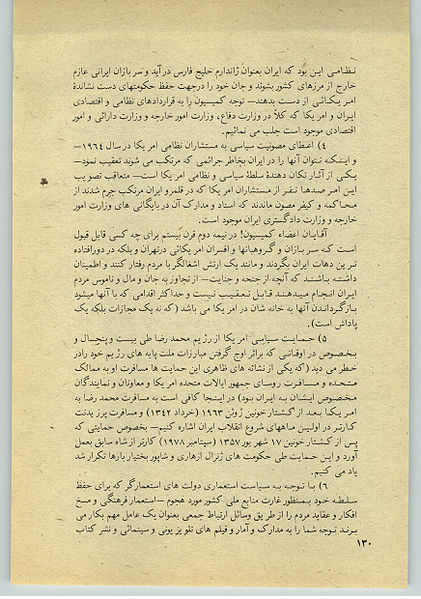 نظامی این بود که ایران بعنوان ژاندارم خلیج فارس در آید و سر بازان ایرانی عازم
خارج از مرزهای کشور بشوند و جان خود را درجهت حفظ حکومتهای دست نشاندهٔ
امریکائی از دست بدهند— توجه کمیسیون را به قراردادهای نظامی و اقتصادی
ایران و امریکا که کلاً در وزارت دفاع، وزارت امور خارجه و وزارت دارائی و امور
اقتصادی موجود است جلب می نمائیم.
۴) اعطای مصونیت سیاسی به مستشاران نظامی امریکا در سال ۱۹۶۴—
و اینکه نتوان آنها را در ایران بخاطر جرائمی که مرتکب می شوند تعقیب نمود—
یکی از آثار تکان دهندهٔ سلطهٔ سیاسی و نظامی امریکا است— متعاقب تصویب
این امر صدها نفر از مستشاران امریکا که در قلمرو ایران مرتکب جرم شدند از
محاکمه و کیفر مصون ماندند که اسناد و مدارک آن در بایگانی های وزارت امور
خارجه و وزارت دادگستری ایران موجود است.
آقایان اعضاء کمیسیون! در نیمه دوم قرن بیستم برای چه کسی قابل قبول
است که سربازان و گروهبانها و افسران امریکائی درتهران و بلکه در دورافتاده
ترین دهات ایران بگردند و مانند یک ارتش اشغالگر با مردم رفتار کنند و اطمینان
داشته باشند که آنچه از جنحه و جنایت— از تجاوز به جان و مال و ناموس مردم
ایران انجام میدهند قابل تعقیب نیست و حداکثر اقدامی که با آنها میشود
بازگرداندن آنها به خانه شان در امریکا می باشد (که نه یک مجازات بلکه یک
پاداش است).
۵) حمایت سیاسی امریکا از رژیم محمد رضا طی بیست و پنجسال و
بخصوص در اوقاتی که براثر اوج گرفتن مبارزات ملت پایه های رژیم خود رادر
خطر می دید (که یکی از نشانه های ظاهری این حمایت ها مسافرت او به ممالک
متحده و مسافرت روسای جمهور ایالات متحده امریکا و معاونان و نمایندگان
مخصوص ایشان به ایران بود) در اینجا کافی است به مسافرت محمد رضا به
امریکا بعد از کشتار خونین ژوئن ۱۹۶۳ (خرداد ۱۳۴۲) و مسافرت پرز یدنت
کارتر در اولین ماههای شروع انقلاب ایران اشاره کنیم— بخصوص حمایتی که
پس از کشتار خونین ۱۷ شهریور ۱۳۵۷ (سپتامبر ۱۹۷۸) کارتر از شاه سابق بعمل
آورد و این حمایت طی حکومت های ژنرال ازهاری و شاپور بختیار بارها تکرار شد
یاد می کنیم.
۶) با توجه به سیاست استعماری دولت های استعمارگر که برای حفظ
سلطه خود بمنظور غارت منابع ملی کشور مورد هجوم —استعمار فرهنگی و مسخ
افکار و عقاید مردم را از طریق وسائل ارتباط جمعی بعنوان یک عامل مهم بکار می
برند توجه شما را به مدارک و آمار و فیلم های تلویزیونی و سینمائی و نشر کتاب
۱۳۰